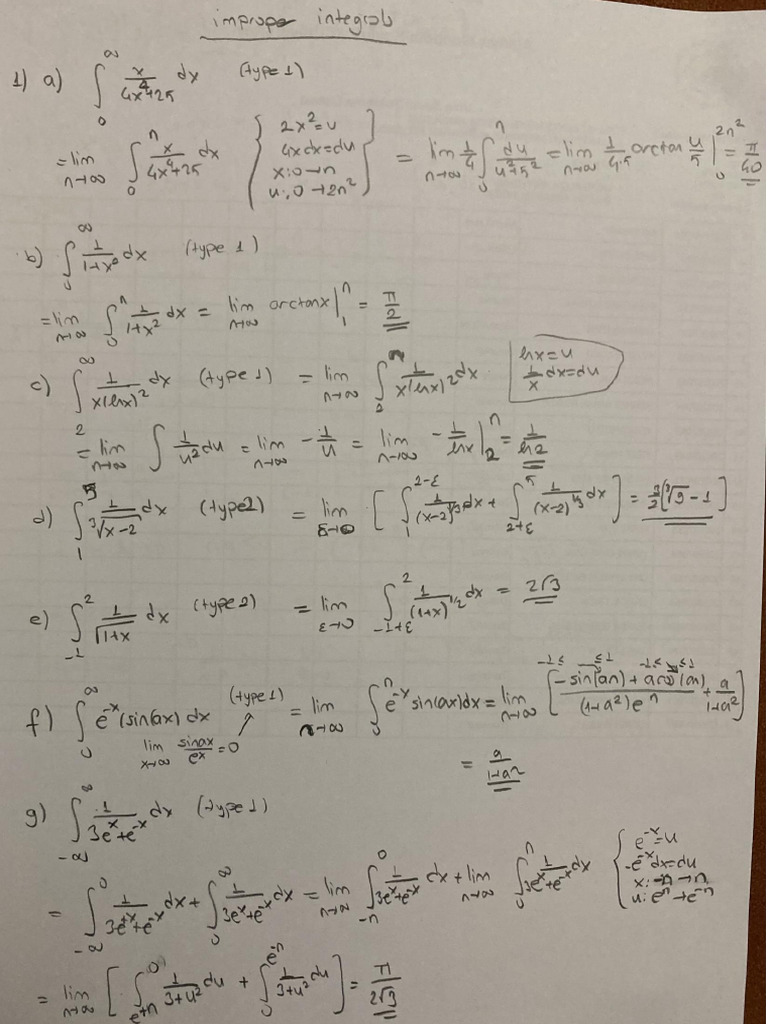 improper integrals
1) a) ∫_0^∞ x/(4x^4+25) dx (type 1)
= lim_{n→∞} ∫_0^n x/(4x^4+25) dx { 2x^2=u 4xdx=du x:0→n u:,0→2n^2 } = lim_{n→∞} 1/4 ∫_0^n du/(u^2+5^2) = lim_{n→∞} 1/(4.5) arctan u/5 |_0^{2n^2} = π/40
b) ∫_0^∞ 1/(1+x^2) dx (type 1)
= lim_{n→∞} ∫_0^n 1/(1+x^2) dx = lim_{n→∞} arctanx |_1^n = π/2
c) ∫_2^∞ 1/(x(lnx)^2) dx (type 1) = lim_{n→∞} ∫_2^n 1/(x(lnx)^2) dx lnx=u 1/x dx=du
= lim_{n→∞} ∫ 1/u^2 du = lim_{n→∞} -1/u = lim_{n→∞} -1/lnx |_2^n = 1/ln2
d) ∫_1^5 1/∛(x-2) dx (type2) = lim_{ε→0} [ ∫_1^{2-ε} 1/(x-2)^{1/3} dx + ∫_{2+ε}^5 1/(x-2)^{1/3} dx ] = 3/2 [∛9 - 1]
e) ∫_{-1}^2 1/√(1+x) dx (type 2) = lim_{ε→0} ∫_{-1+ε}^2 1/(1+x)^{1/2} dx = 2√3
-1≤ ≤1 -1≤ ≤1
f) ∫_0^∞ e^{-x} (sin(ax) dx (type 1) = lim_{n→∞} ∫_0^n e^{-x} sin(ax)dx = lim_{n→∞} [ (-sin(an) + acos(an))/((1+a^2)e^n) + a/(1+a^2) ]
lim_{x→∞} sinax/e^x = 0
= a/(1+a^2)
g) ∫_{-∞}^∞ 1/(3e^x+e^{-x}) dx (type 1)
= ∫_{-∞}^0 1/(3e^x+e^{-x}) dx + ∫_0^∞ 1/(3e^x+e^{-x}) dx = lim_{n→∞} ∫_{-n}^0 1/(3e^x+e^{-x}) dx + lim_{n→∞} ∫_0^n 1/(3e^x+e^{-x}) dx { e^{-x}=u -e^{-x}dx=du x:-n→n u:e^n→e^{-n}
= lim_{n→∞} [ ∫_{e^{+n}}^0 1/(3+u^2) du + ∫_0^{e^{-n}} 1/(3+u^2) du ] = π/(2√3)